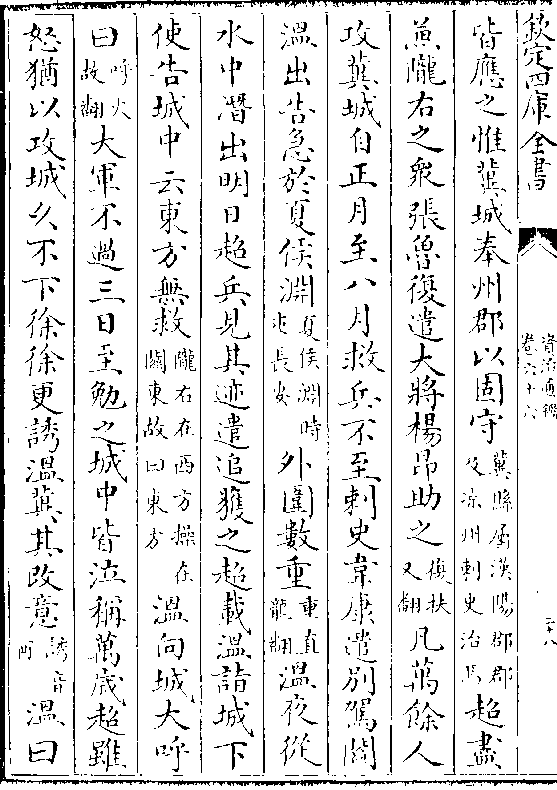 欽定四庫全書
資治通鑑
卷六十六
二十八
皆應之惟冀城奉州郡以固守冀縣屬漢陽郡郡及涼州刺史治焉超盡
兼隴右之衆張魯復遣大將楊昂助之復扶又翻凡萬餘人
攻冀城自正月至八月救兵不至刺史韋康遣別駕閻
溫出告急於夏侯淵夏侯淵時屯長安外圍數重重直龍翻溫夜從
水中潛出明日超兵見其迹遣追獲之超載溫詣城下
使告城中云東方無救隴右在西方操在關東故曰東方溫向城大呼
曰呼火故翻大軍不過三日至勉之城中皆泣稱萬歲超雖
怒猶以攻城久不下徐徐更誘溫冀其改意誘音酉溫曰